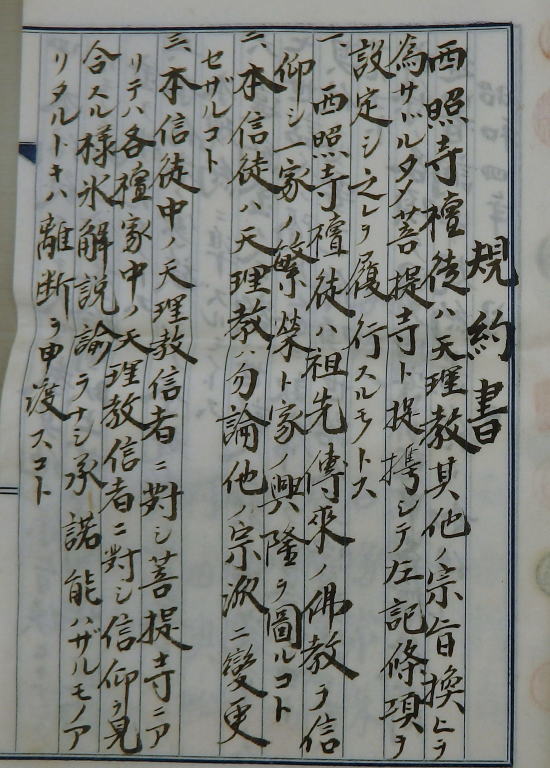 規約書
西照寺檀徒ハ天理教其他ノ宗旨換ヒヲ
為サヾルタメ菩提寺ト提携シテ左記條項ヲ
設定シ之レヲ履行スルモノトス
一、西照寺檀徒ハ祖先傳來ノ佛教ヲ信
仰シ一家ノ繁榮ト家ノ興隆ヲ圖ルコト
二、本信徒ハ天理教ハ勿論他ノ宗派ニ變更
セザルコト
三、本信徒中ノ天理教信者ニ對シ菩提寺ニア
リテハ各檀家中ノ天理教信者ニ對シ信仰ヲ見
合スル樣氷解説諭ヲナシ承諾能ハザルモノア
リタルトキハ離断ヲ申渡スコト